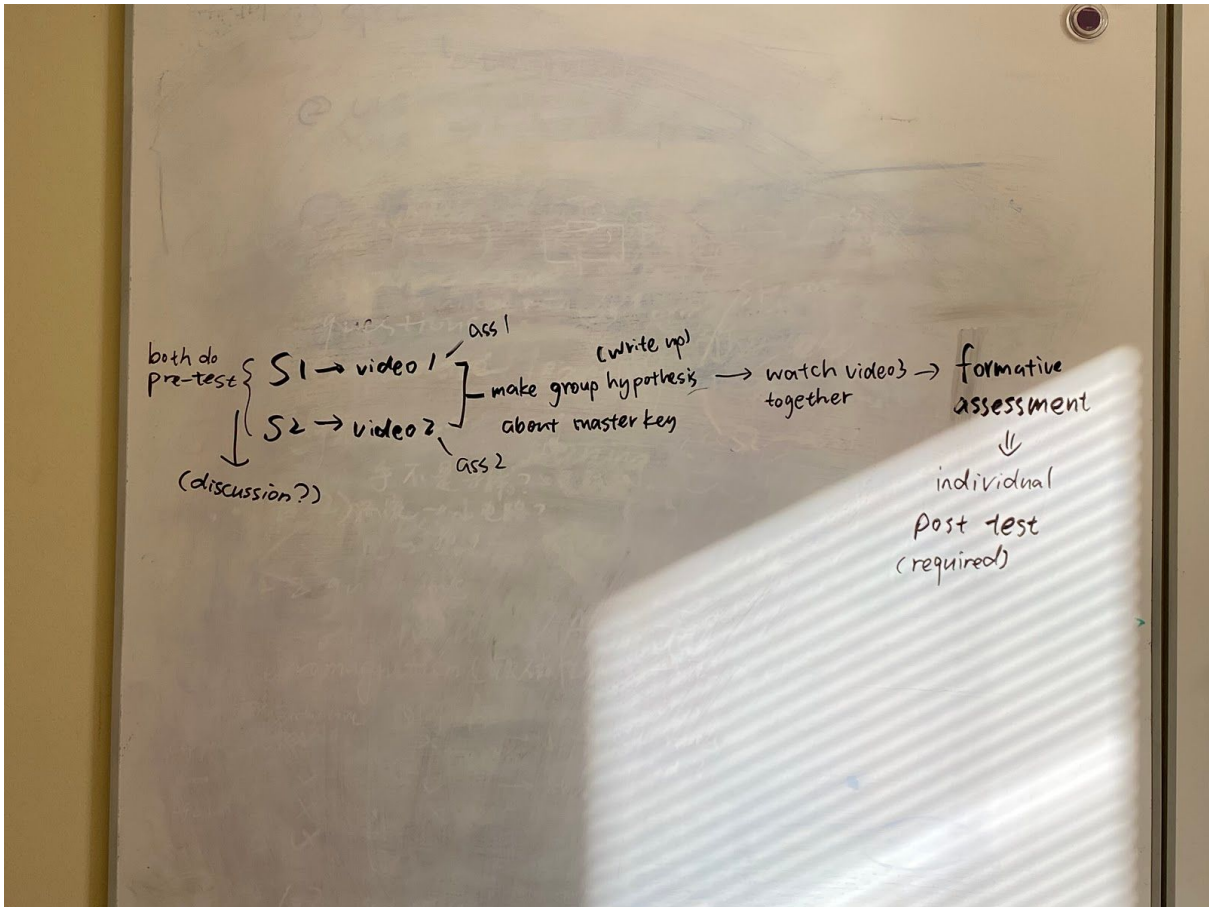 both do
pre-test
S1 → video 1
ass 1
S2 → video 2
ass 2
(discussion?)
(write up)
make group hypothesis
about master key
→ watch video3 →
together
formative
assessment
⇓
individual
post test
(required)